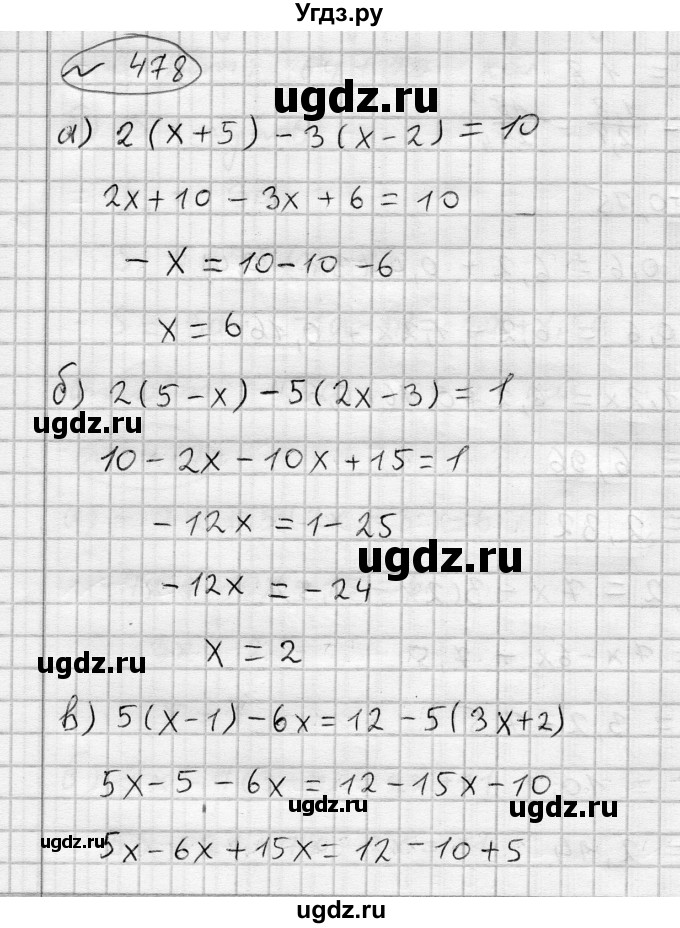 Угдз.ру
№ 478
ugdz.ru
а) 2(x+5) - 3(x-2) = 10
2x+10 - 3x + 6 = 10
- x = 10-10 -6
x = 6
б) 2(5-x) - 5(2x-3) = 1
ugdz.ru
10 - 2x - 10x + 15 = 1
- 12x = 1 - 25
ugdz.ru
- 12x = - 24
x = 2
ugdz.ru
в) 5(x-1) - 6x = 12 - 5(3x+2)
5x - 5 - 6x = 12 - 15x - 10
ugdz.ru
ugdz.ru
ugdz.ru
5x - 6x + 15x = 12 - 10 + 5
ugdz.ru